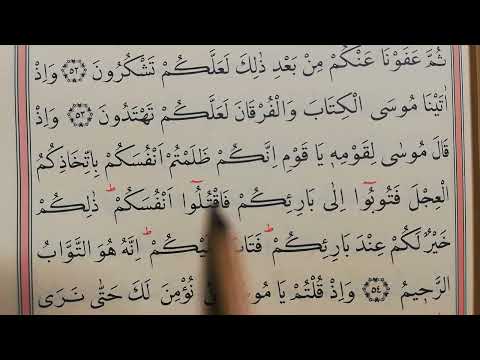 ثُمَّ عَفَوْنَا عَنْكُمْ مِنْ بَعْدِ ذٰلِكَ لَعَلَّكُمْ تَشْكُرُونَ ﴿٥٢﴾ وَاِذْ
اٰتَيْنَا مُوسَى الْكِتَابَ وَالْفُرْقَانَ لَعَلَّكُمْ تَهْتَدُونَ ﴿٥٣﴾ وَاِذْ
قَالَ مُوسٰى لِقَوْمِهٖ يَا قَوْمِ اِنَّكُمْ ظَلَمْتُمْ اَنْفُسَكُمْ بِاتِّخَاذِكُمُ
الْعِجْلَ فَتُوبُٓوا اِلٰى بَارِئِكُمْ فَاقْتُلُٓوا اَنْفُسَكُمْ ط ذٰلِكُمْ
خَيْرٌ لَكُمْ عِنْدَ بَارِئِكُمْ ط فَتَابَ ط اِنَّهُ هُوَ التَّوَّابُ
الرَّحٖيمُ ﴿٥٤﴾ وَاِذْ قُلْتُمْ يَا نُؤْمِنَ لَكَ حَتّٰى نَرَى